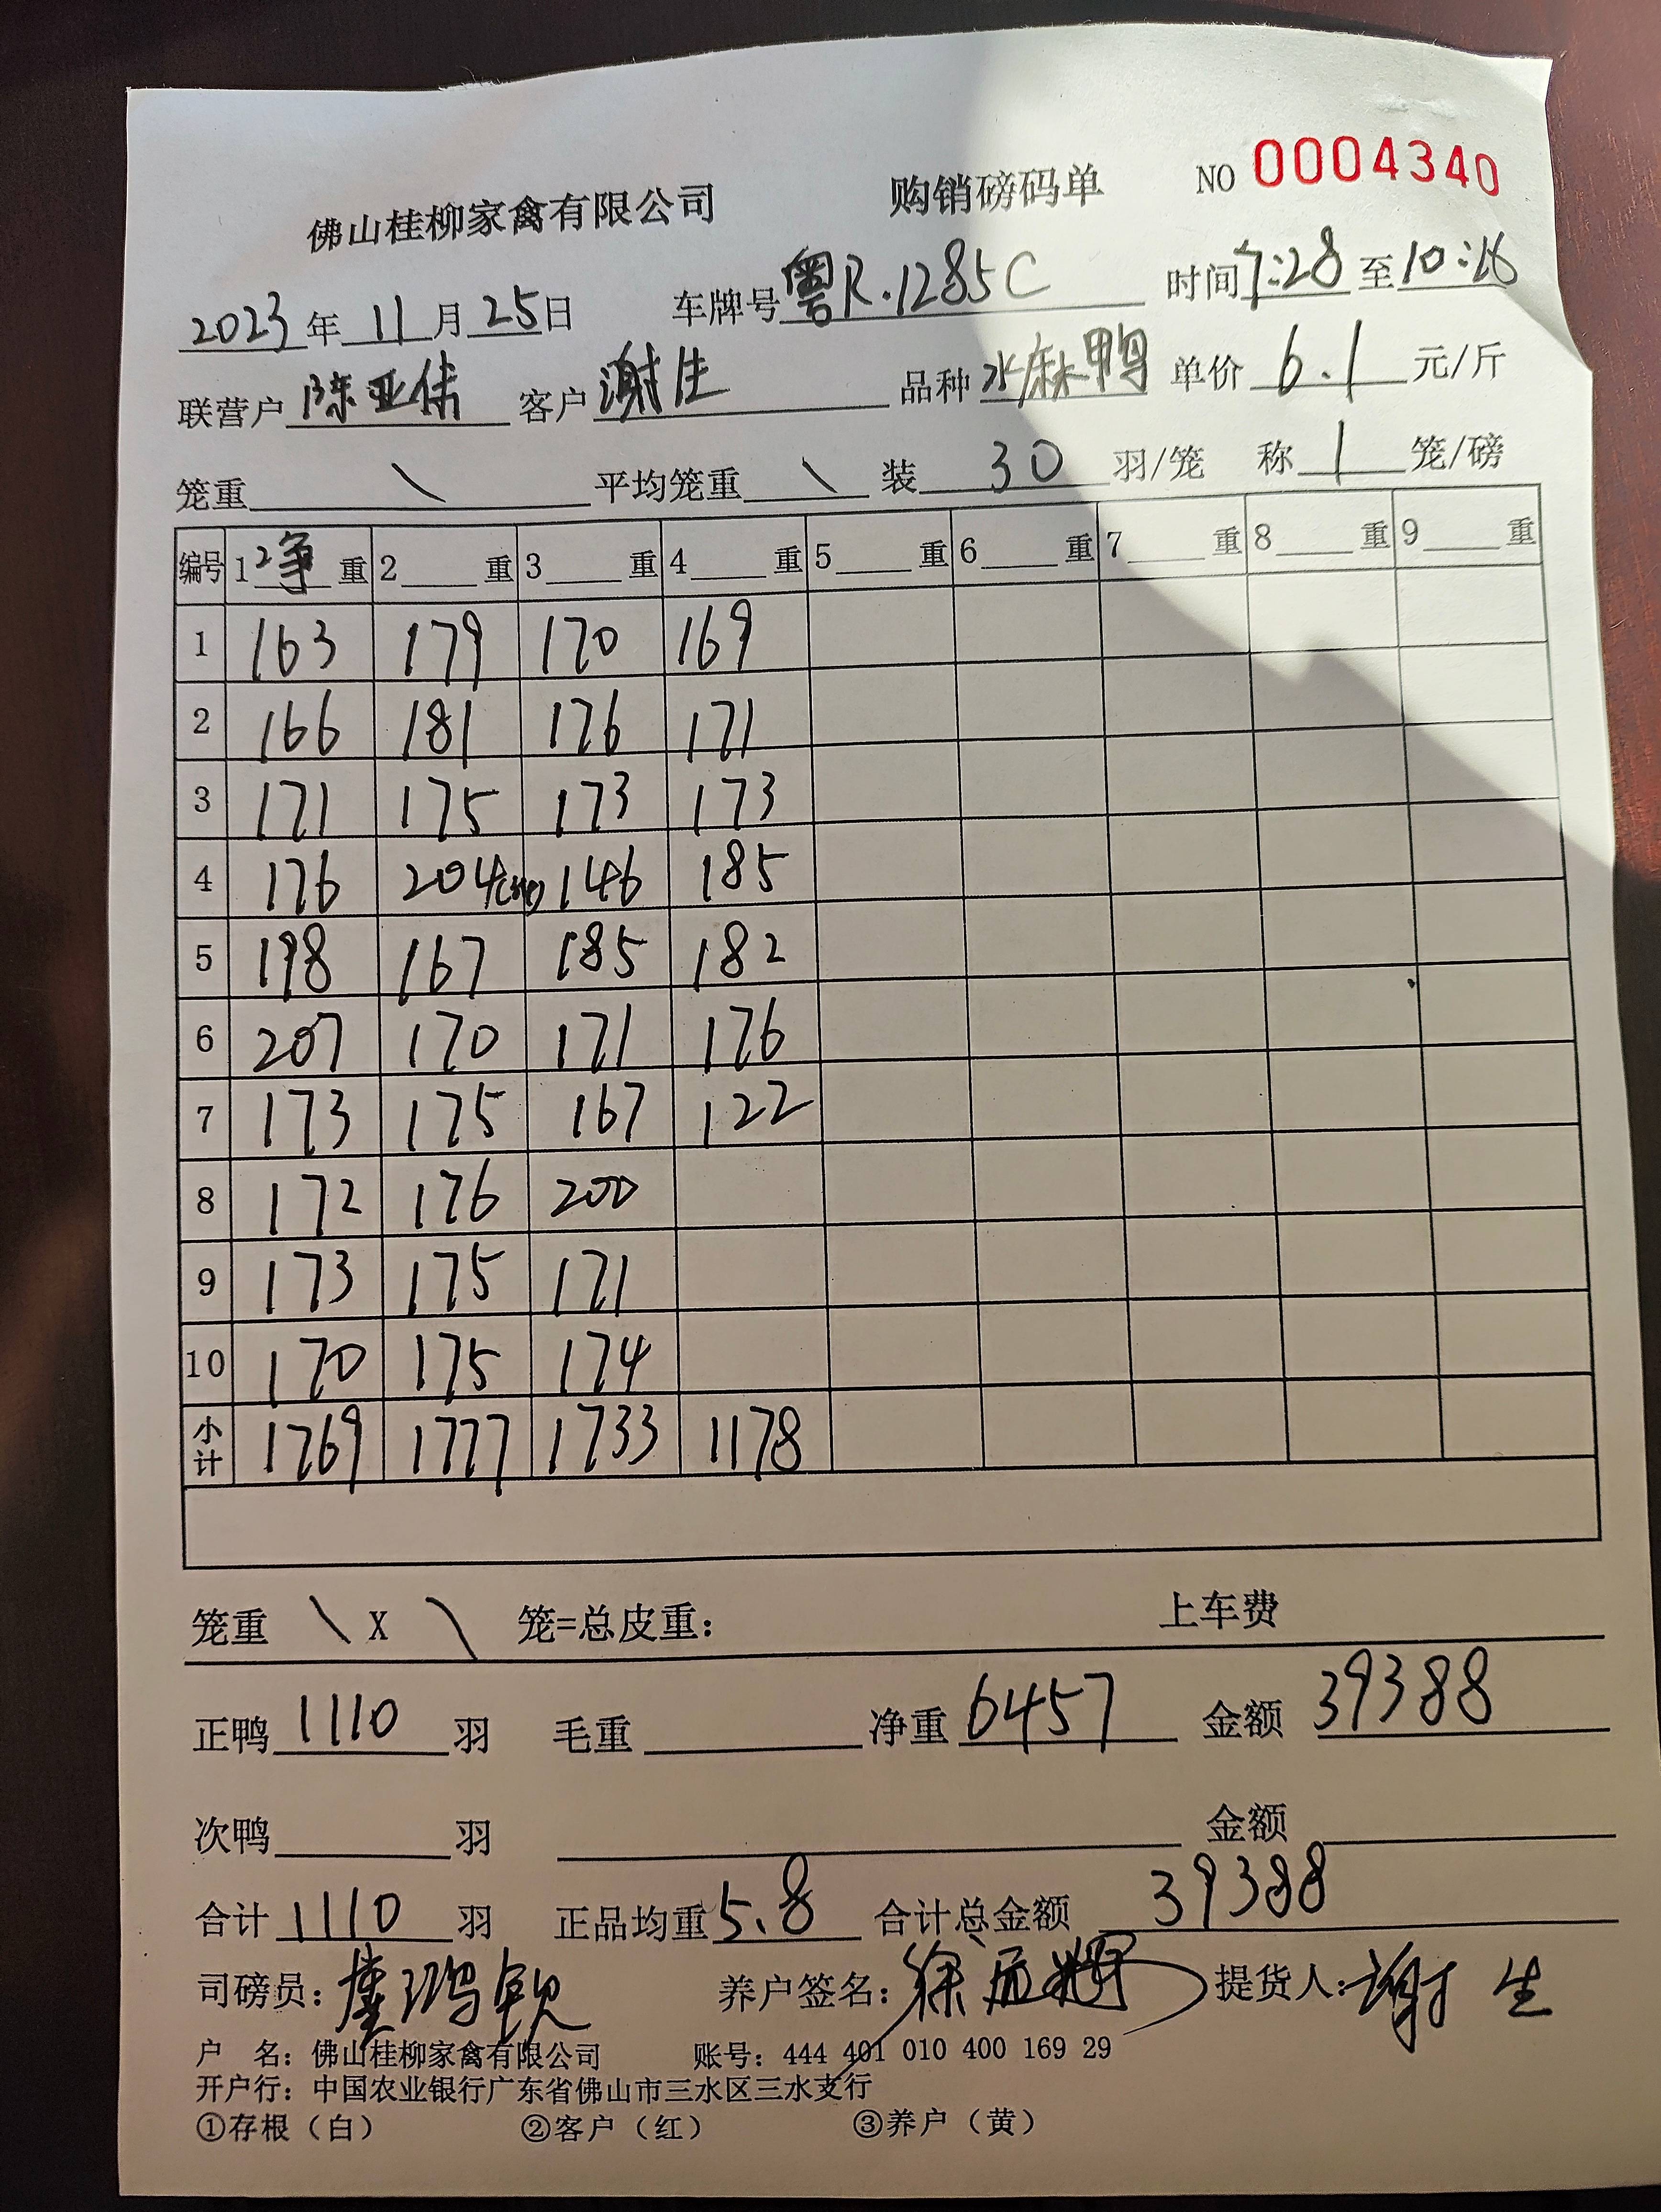 佛山桂柳家禽有限公司 购销磅码单 NO 0004340
2023年11月25日 车牌号粤R.1285C 时间7:28至10:16
联营户陈亚伟 客户谢生 品种水麻鸭 单价6.1元/斤
笼重\ 平均笼重\ 装30羽/笼 称1笼/磅
编号 1净重 2重 3重 4重 5重 6重 7重 8重 9重
1 163 179 170 169
2 166 181 176 171
3 171 175 173 173
4 176 204 146 185
5 198 167 185 182
6 207 170 171 176
7 173 175 167 122
8 172 176 200
9 173 175 171
10 170 175 174
小计 1769 1777 1733 1178
笼重 \ X \ 笼=总皮重: 上车费
正鸭1110羽 毛重 净重6457 金额39388
次鸭 羽 金额
合计1110羽 正品均重5.8 合计总金额39388
司磅员: 养户签名: 提货人:谢生
户 名: 佛山桂柳家禽有限公司 账号: 444 401 010 400 169 29
开户行: 中国农业银行广东省佛山市三水区三水支行
①存根（白） ②客户（红） ③养户（黄）